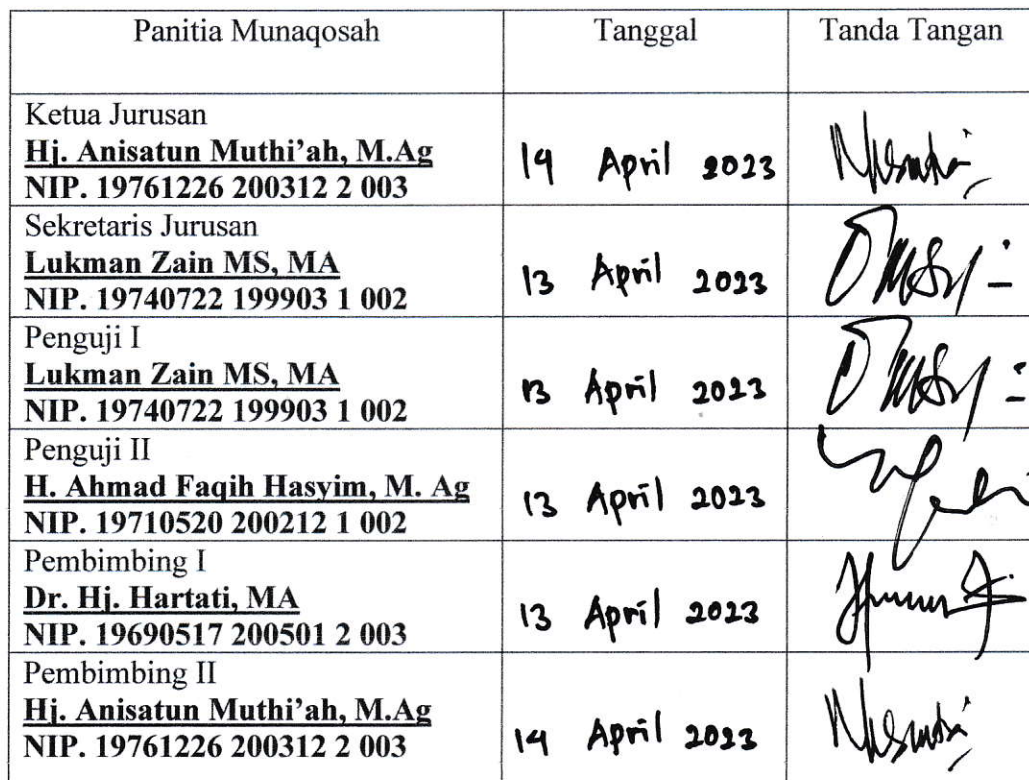 Panitia Munaqosah Tanggal Tanda Tangan
Ketua Jurusan
Hj. Anisatun Muthi'ah, M.Ag
NIP. 19761226 200312 2 003
14 April 2023
Sekretaris Jurusan
Lukman Zain MS, MA
NIP. 19740722 199903 1 002
13 April 2023
Penguji I
Lukman Zain MS, MA
NIP. 19740722 199903 1 002
13 April 2023
Penguji II
H. Ahmad Faqih Hasyim, M. Ag
NIP. 19710520 200212 1 002
13 April 2023
Pembimbing I
Dr. Hj. Hartati, MA
NIP. 19690517 200501 2 003
13 April 2023
Pembimbing II
Hj. Anisatun Muthi'ah, M.Ag
NIP. 19761226 200312 2 003
14 April 2023